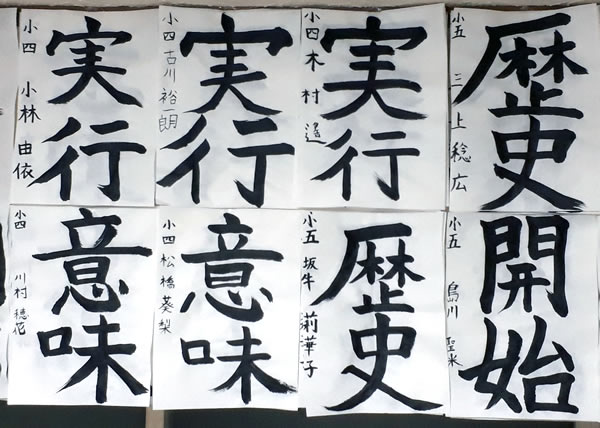 実行
小四 小林 由依
実行
小四 古川 裕一朗
実行
小四 木村 遥
歴史
小五 三上 稔広
意味
小四 川村 穂花
意味
小四 松橋 葵梨
歴史
小五 坂牛 莉華子
開始
小五 島川 聖米